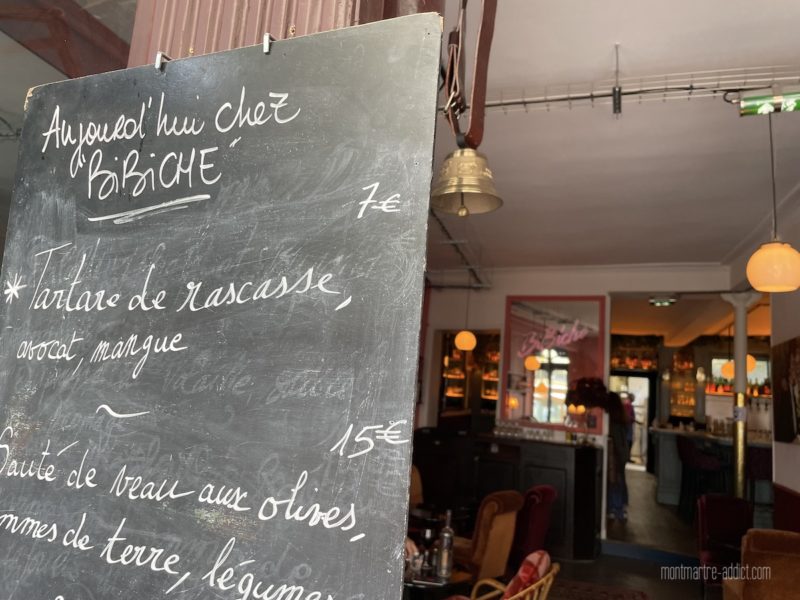 Aujourd'hui chez
"BiBiCHE"
7€
* Tartare de rascasse,
avocat, mangue
~
15€
Sauté de veau aux olives,
ommes de terre, légumes
BiBiche
montmartre-addict.com